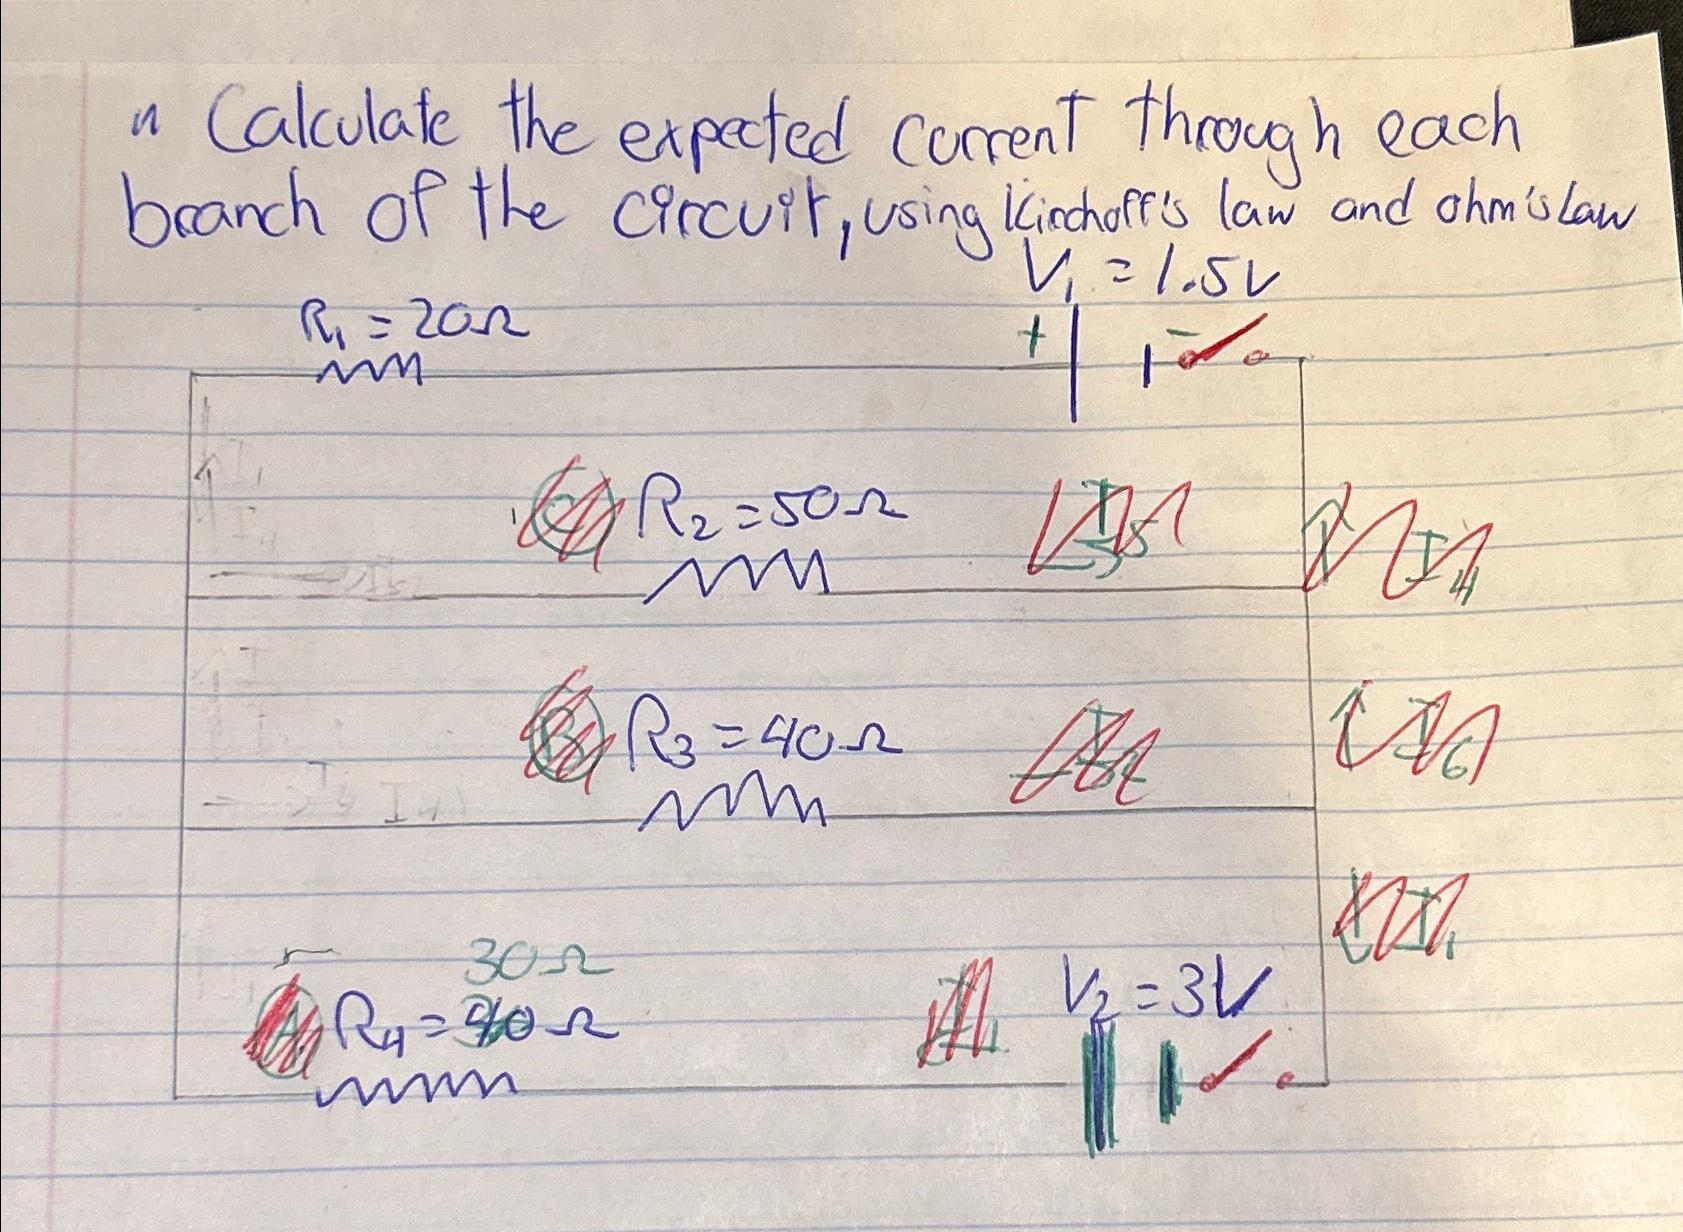 " Calculate the expected current through each
branch of the circuit, using Kirchoff's law and ohm's Law
V₁ = 1.5V
R₁ = 20Ω
+ -
C R₂ = 50Ω I₅ I₄
B R₃ = 40Ω I₂ I₆
I₁
30Ω
A R₄ = Ω I₁ V₂ = 3V